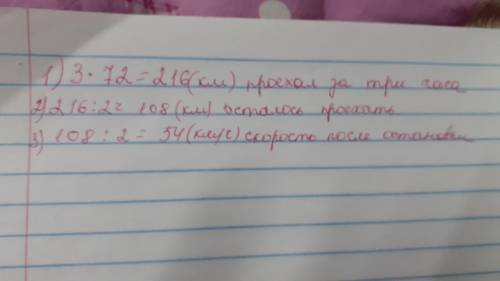 1) 3 · 72 = 216 (км) проехал за три часа
2) 216 : 2 = 108 (км) осталось проехать
3) 108 : 2 = 54 (км/с) скорость после остановки